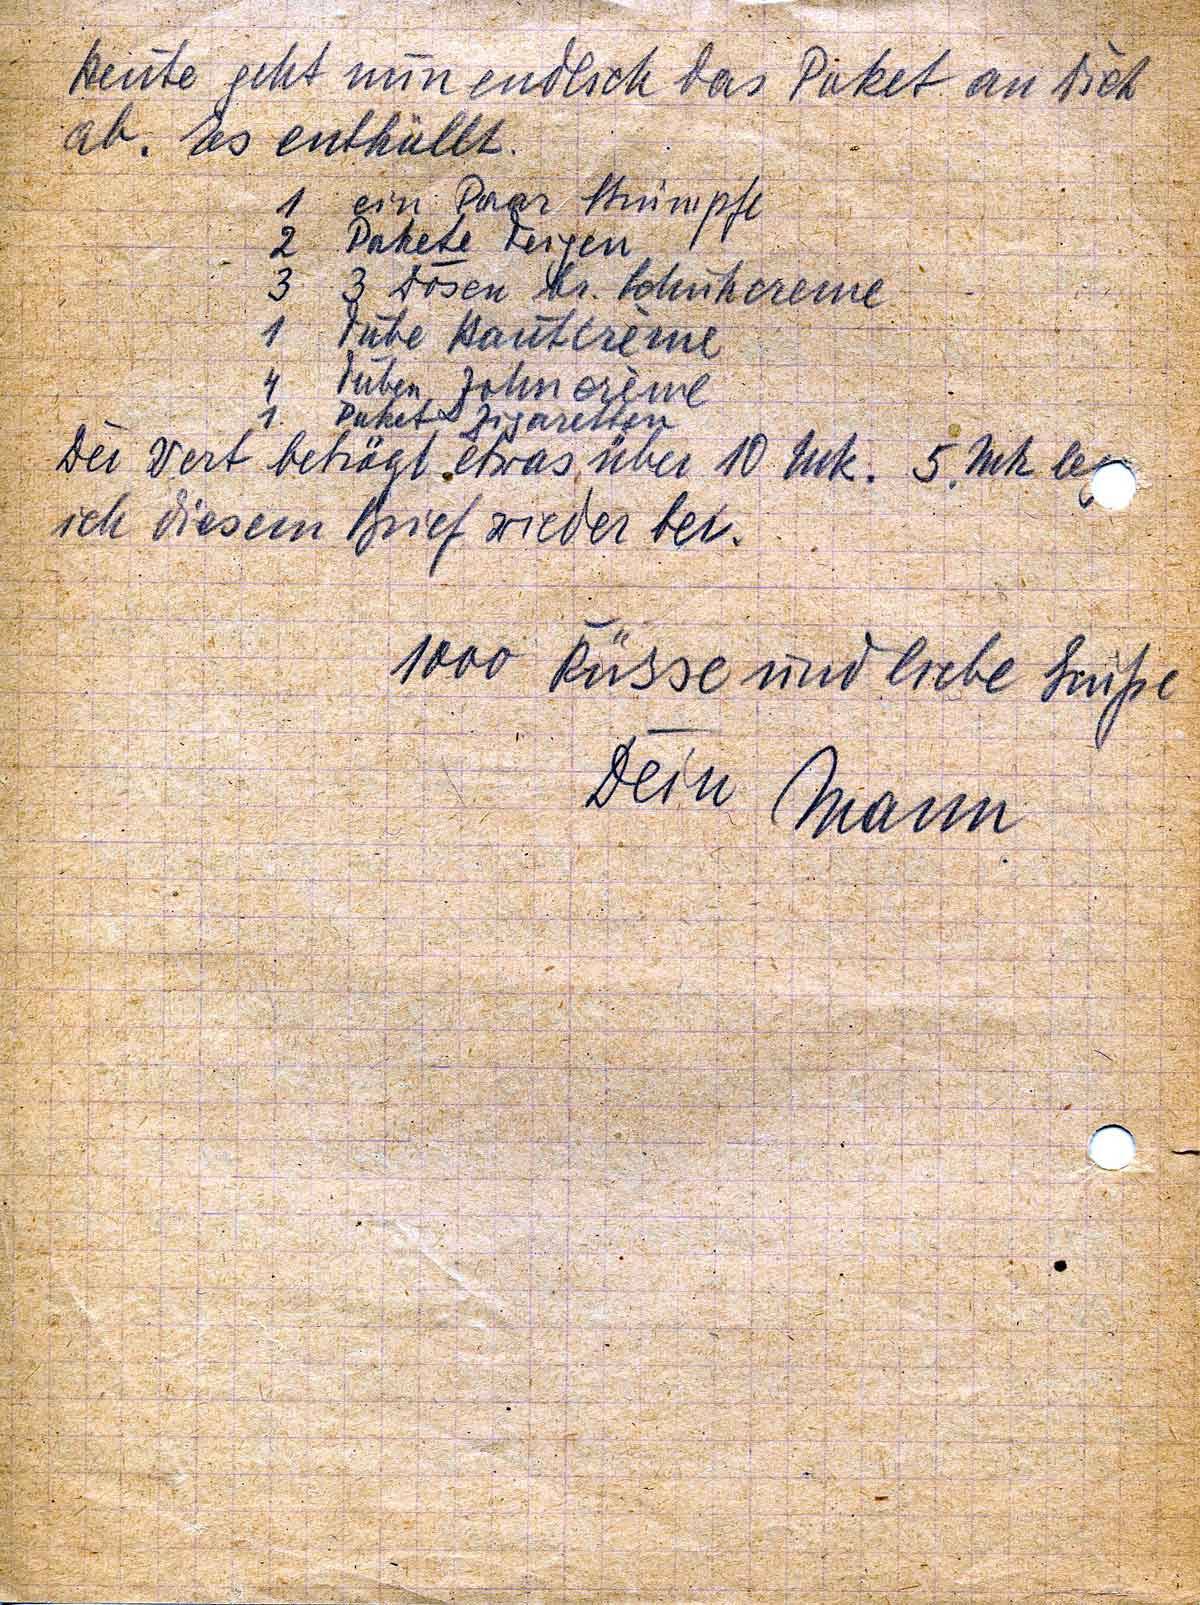 Heute geht nun endlich das Paket an Dich
ab. Es enthällt.
1 ein Paar Strümpfe
2 Pakete Feigen
3 3 Dosen br. Schuhcreme
1 Tube Hautcrème
4 Tuben Zahncrème
1. Paket Zigaretten
Der Wert beträgt etwas über 10 Mk. 5. Mk leg
ich diesem Brief wieder bei.
1000 Küsse und liebe Grüße
Dein Mann